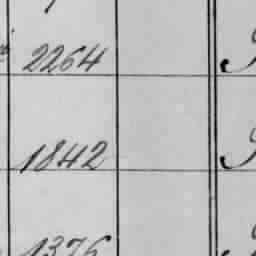 2264
1842
1376